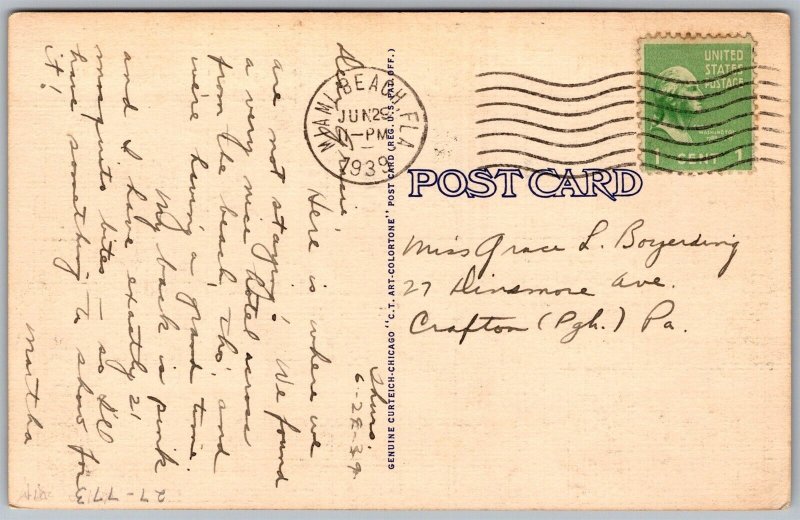 Thurs.
6-29-39
Here is where we
are not staying! We found
a very nice hotel across
from the beach, tho', and
we're having a grand time.
My back is pink
and I have exactly 21
mosquito bites — so I'll
have something to show for
it!
Martha
27-77
MIAMI BEACH, FLA.
JUN 29
PM
1939
UNITED
STATES
POSTAGE
WASHINGTON
1 CENT 1
POST CARD
Miss Grace L. Boyerding
27 Dinsmore Ave.
Crafton (Pgh.) Pa.
GENUINE CURTEICH-CHICAGO "C.T. ART-COLORTONE" POST CARD (REG. U.S. PAT. OFF.)